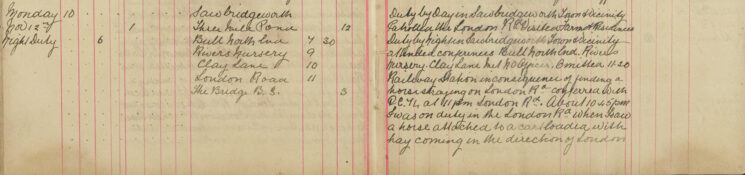 Monday 10 Sawbridgeworth
Nov 12th 1 Three Mile Pond 12
Night Duty 6 Bull North End 7 30
Rivers Nursery 9
Clay Lane 10
London Road 11
The Bridge B.S. 3
Duty by Day in Sawbridgeworth Town & Vicinity
Patrolled the London Rd Visited Farms & Residences
Duty by night in Sawbridgeworth Town & Vicinity
attended conferences Bull North End. Rivers
Nursery. Clay Lane met no Officer. Omitted 11-30
Railway Station in consequence of finding a
horse straying on London Rd conferred with
P.C. 72 at 11 pm London Rd. About 10.45 pm
I was on duty in the London Rd when I saw
a horse attached to a cart loaded with
hay coming in the direction of London